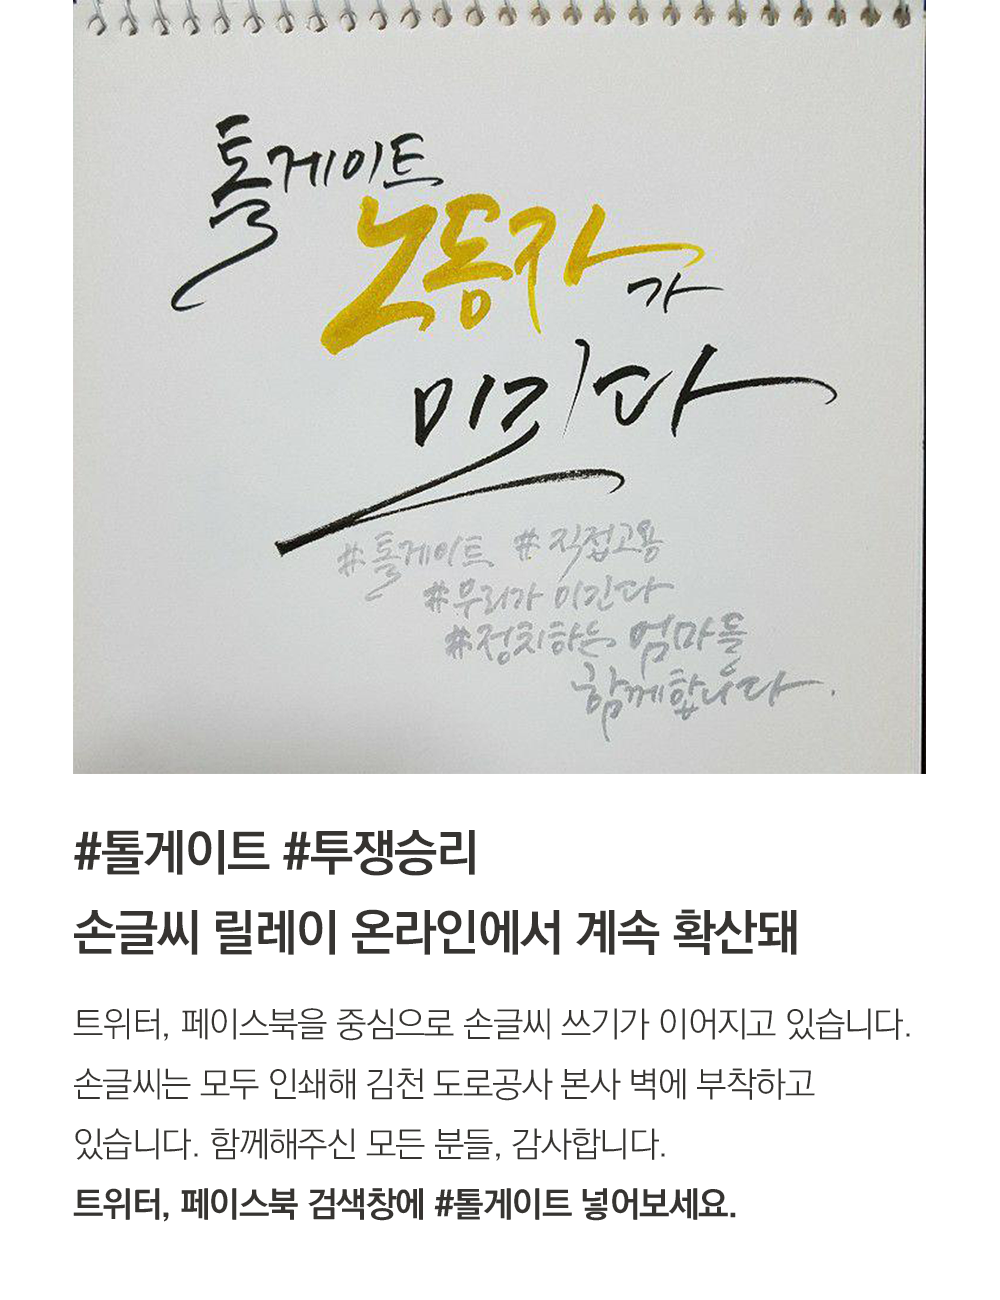 톨게이트
노동자가
이긴다
#톨게이트 #직접고용
#우리가 이긴다
#정치하는 엄마들
함께합니다.
#톨게이트 #투쟁승리
손글씨 릴레이 온라인에서 계속 확산돼
트위터, 페이스북을 중심으로 손글씨 쓰기가 이어지고 있습니다.
손글씨는 모두 인쇄해 김천 도로공사 본사 벽에 부착하고
있습니다. 함께해주신 모든 분들, 감사합니다.
트위터, 페이스북 검색창에 #톨게이트 넣어보세요.